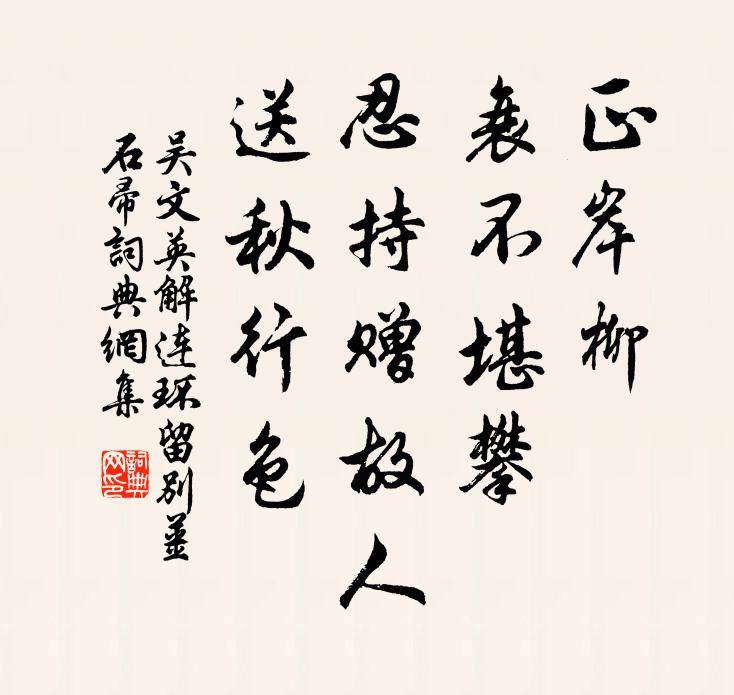 正岸柳
衰不堪攀
忍持赠故人
送秋行色
吴文英解连环留别姜
石帚詞典網集
詞典
网印